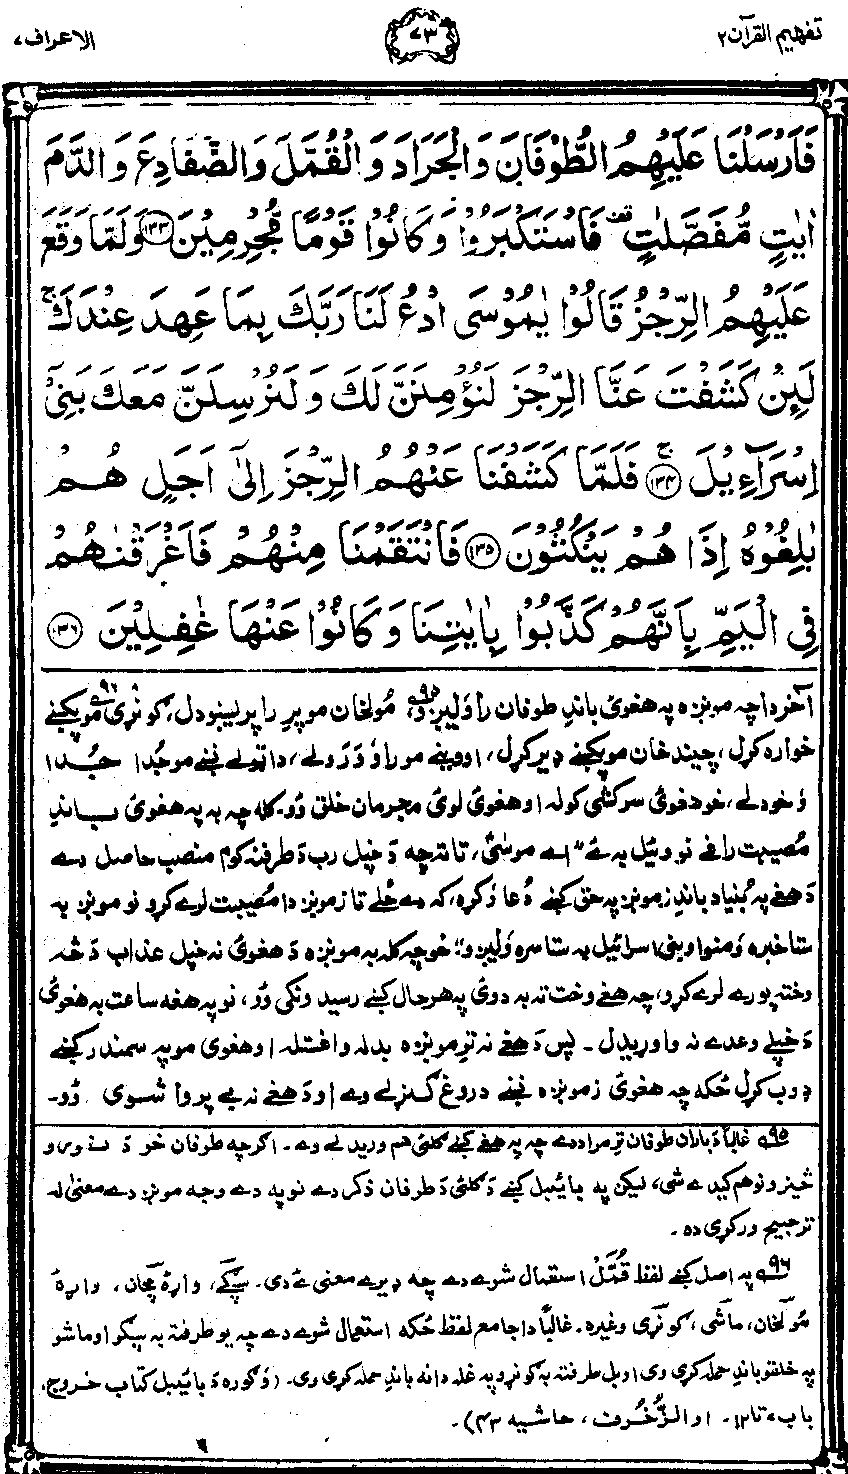 تفهیم القرآن ۲
۷۳
الاعراف ۷
فَاَرْسَلْنَا عَلَيْهِمُ الطُّوْفَانَ وَالْجَرَادَ وَ الْقُمَّلَ وَالضَّفَادِعَ وَ الدَّمَ
اٰيٰتٍ مُّفَصَّلٰتٍ فَاسْتَكْبَرُوْا وَ كَانُوْا قَوْمًا مُّجْرِمِيْنَ ۱۳۳ وَلَمَّا وَقَعَ
عَلَيْهِمُ الرِّجْزُ قَالُوْا يٰمُوْسَى ادْعُ لَنَا رَبَّكَ بِمَا عَهِدَ عِنْدَكَ ج
لَئِنْ كَشَفْتَ عَنَّا الرِّجْزَ لَنُؤْمِنَنَّ لَكَ وَ لَنُرْسِلَنَّ مَعَكَ بَنِيْٓ
اِسْرَآءِيْلَ ج ۱۳۴ فَلَمَّا كَشَفْنَا عَنْهُمُ الرِّجْزَ اِلٰٓى اَجَلٍ هُمْ
بٰلِغُوْهُ اِذَا هُمْ يَنْكُثُوْنَ ۱۳۵ فَانْتَقَمْنَا مِنْهُمْ فَاَغْرَقْنٰهُمْ
فِي الْيَمِّ بِاَنَّهُمْ كَذَّبُوْا بِاٰيٰتِنَا وَ كَانُوْا عَنْهَا غٰفِلِيْنَ ۱۳۶
آخر دا چه مونږه په هغوئ باندِ طوفان راولېږو ۹۵، مُولخان مو پرِ را پرېښودل، کونړی ۹۶ مو پکښے
خواره کړل، چیندخان مو پکښے ډېر کړل، او وینے مو را وَ وَرَولے، دا ټولے نښے مو جُدا جُدا
وَ خودلے، خو دغوئ سرکشی کوله او هغوئ لوئ مجرمان خلق وُو. کله چه به په هغوئ باندِ
مُصیبت راغے نو وئیل به ئے "اے موسٰی، تا ته چه دَ خپل رب دَ طرفنه کوم منصب حاصل دے
دَ هغے په بُنیاد باندِ زمونږ په حق کښے دُعا وَکړه، که دے ځلے تا زمونږ دا مُصیبت لرے کړو نو مونږ به
ستا خبره وَمنو او بنی اسرائیل به ستا سره وَلېږو"؛ خو چه کله به مونږه دَ هغوئ نه خپل عذاب دَ څه
وخته پورے لرے کړو، چه هغے وخت ته به دوئ په هر حال کښے رسیدونکی وُو، نو په هغه ساعت به هغوئ
دَ خپلے وعدے نه واوړیدل ـ پس دَ هغے نه ترِ مونږه بدله واغستله او هغوی مو په سمندر کښے
ډوب کړل ځکه چه هغوئ زمونږه نښے دروغ ګنړلے وے او دَ هغے نه بے پروا شوی وُو ـ
۹۵ غالباً دَ باران طوفان ترِ مراد دے چه په هغے کښے ګلئ هم وریدلے وے ـ اګرچه طوفان خو دَ نورو
څیزونو هم کېدے شی، لیکن په بائیبل کښے دَ ګلئ دَ طوفان ذکر دے نو په دے وجه مونږه دے معنٰی له
ترجیح ورکړی ده ـ
۹۶ په اصل کښے لفظ قُمَّلْ استعمال شوے دے چه ډیرے معنٰی ئے دی ـ سپګے، واړهٔ مچان، واړهٔ
مُولخان، ماشی، کونړی وغیره ـ غالباً دا جامع لفظ ځکه استعمال شوے دے چه یو طرفته به سپګو او ماشو
په خلقو باندِ حمله کړی وی او بل طرفته به کونړو په غله دانه باندِ حمله کړی وی ـ (وَګوره دَ بائیبل کتاب خروج،
باب ۷ تا ۱۲ ـ او الزُّخرُف، حاشیه ۴۳) ـ